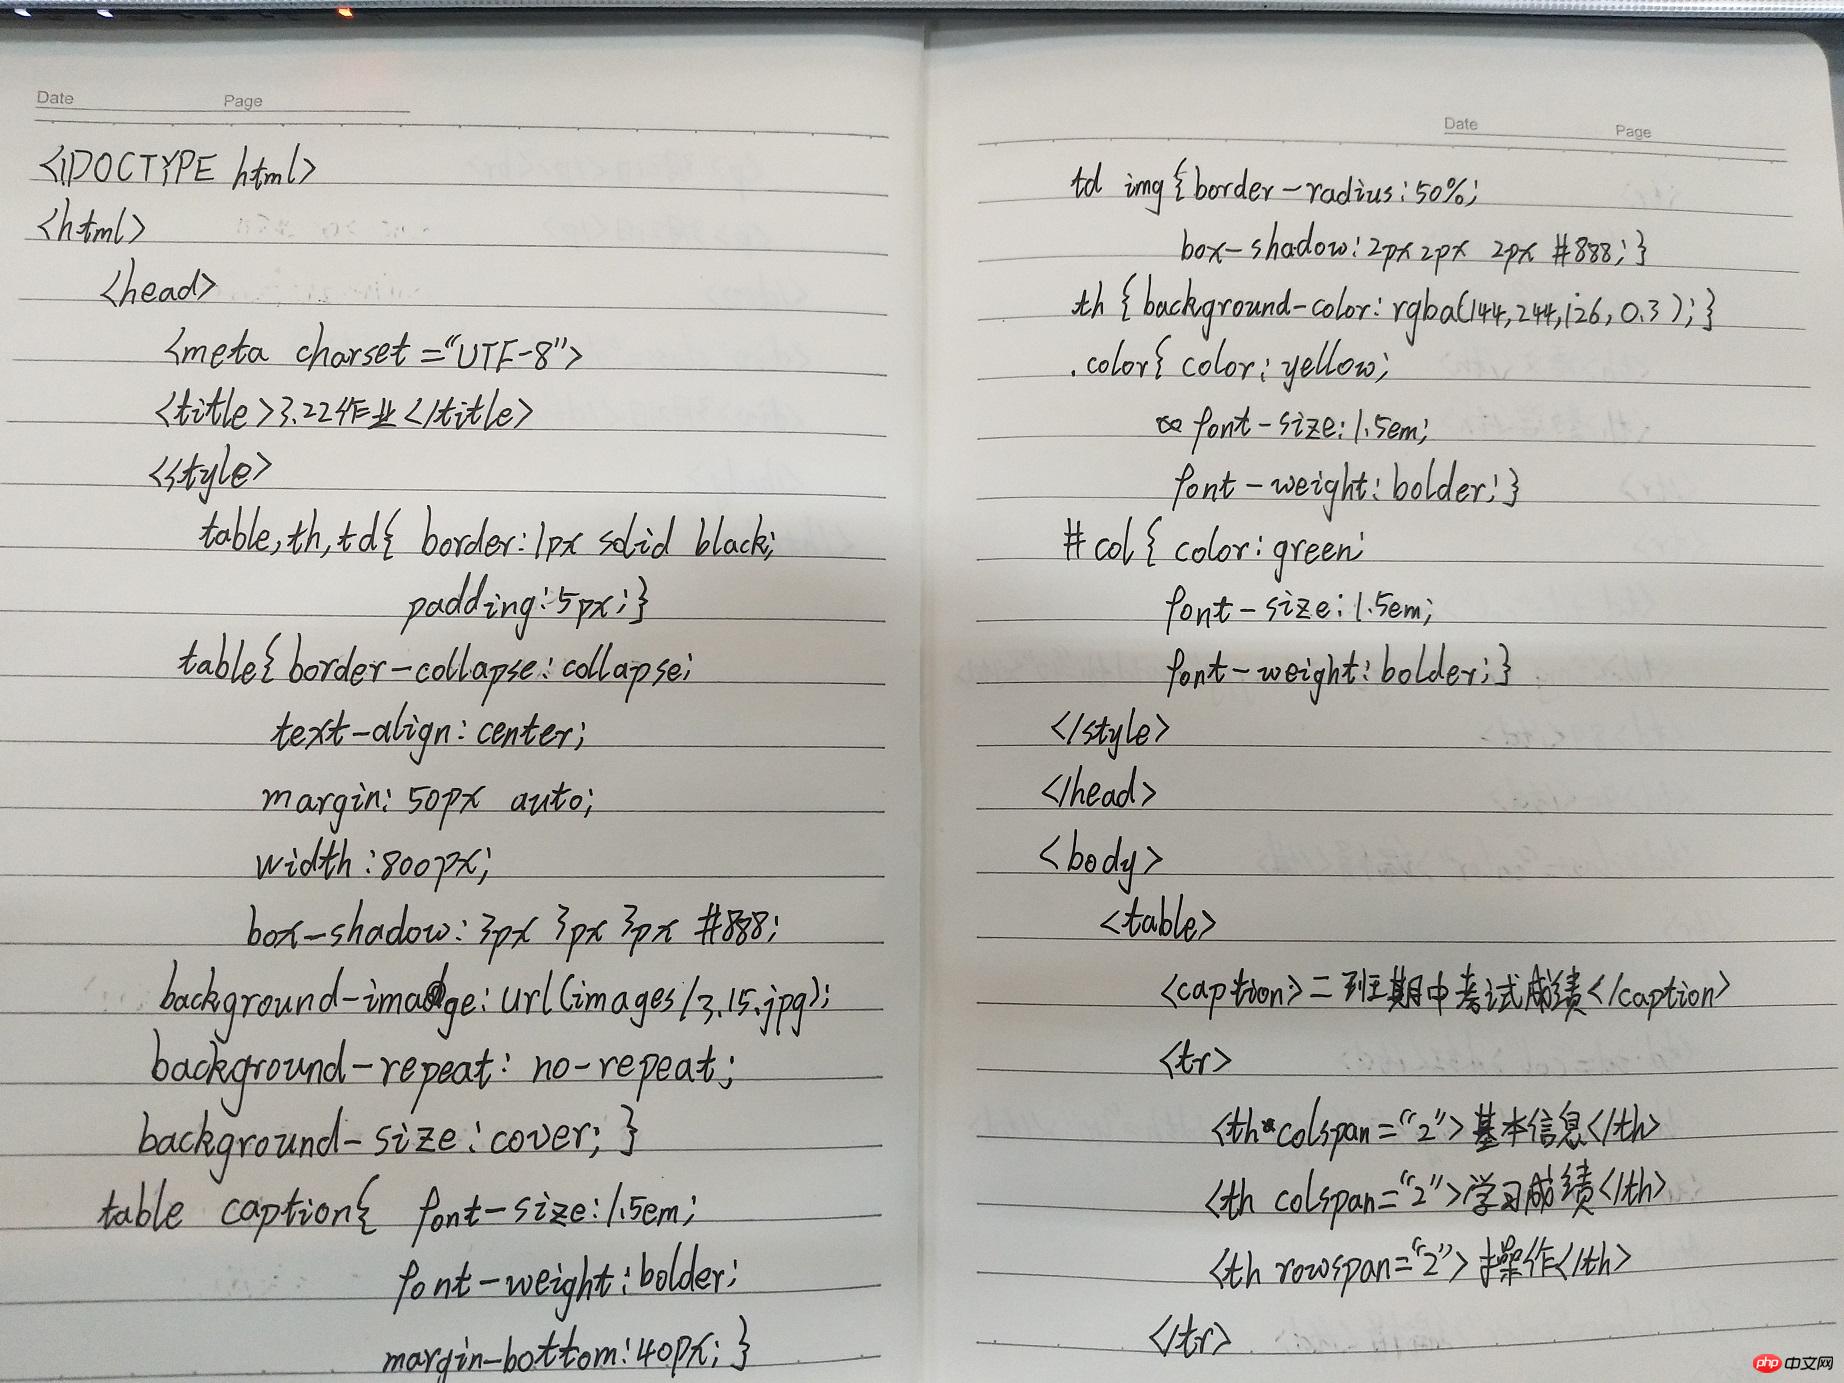 Date Page
<!DOCTYPE html>
<html>
<head>
<meta charset="UTF-8">
<title>3.22作业</title>
<style>
table,th,td{ border:1px solid black;
padding:5px;}
table{border-collapse:collapse;
text-align:center;
margin:50px auto;
width:800px;
box-shadow:3px 3px 3px #888;
background-image:url(images/3.15.jpg);
background-repeat:no-repeat;
background-size:cover;}
table caption{ font-size:1.5em;
font-weight:bolder;
margin-bottom:40px;}
Date Page
td img{border-radius:50%;
box-shadow:2px 2px 2px #888;}
th{background-color:rgba(144,244,126,0.3);}
.color{color:yellow;
font-size:1.5em;
font-weight:bolder;}
#col{color:green;
font-size:1.5em;
font-weight:bolder;}
</style>
</head>
<body>
<table>
<caption>二班期中考试成绩</caption>
<tr>
<th colspan="2">基本信息</th>
<th colspan="2">学习成绩</th>
<th rowspan="2">操作</th>
</tr>
php中文网